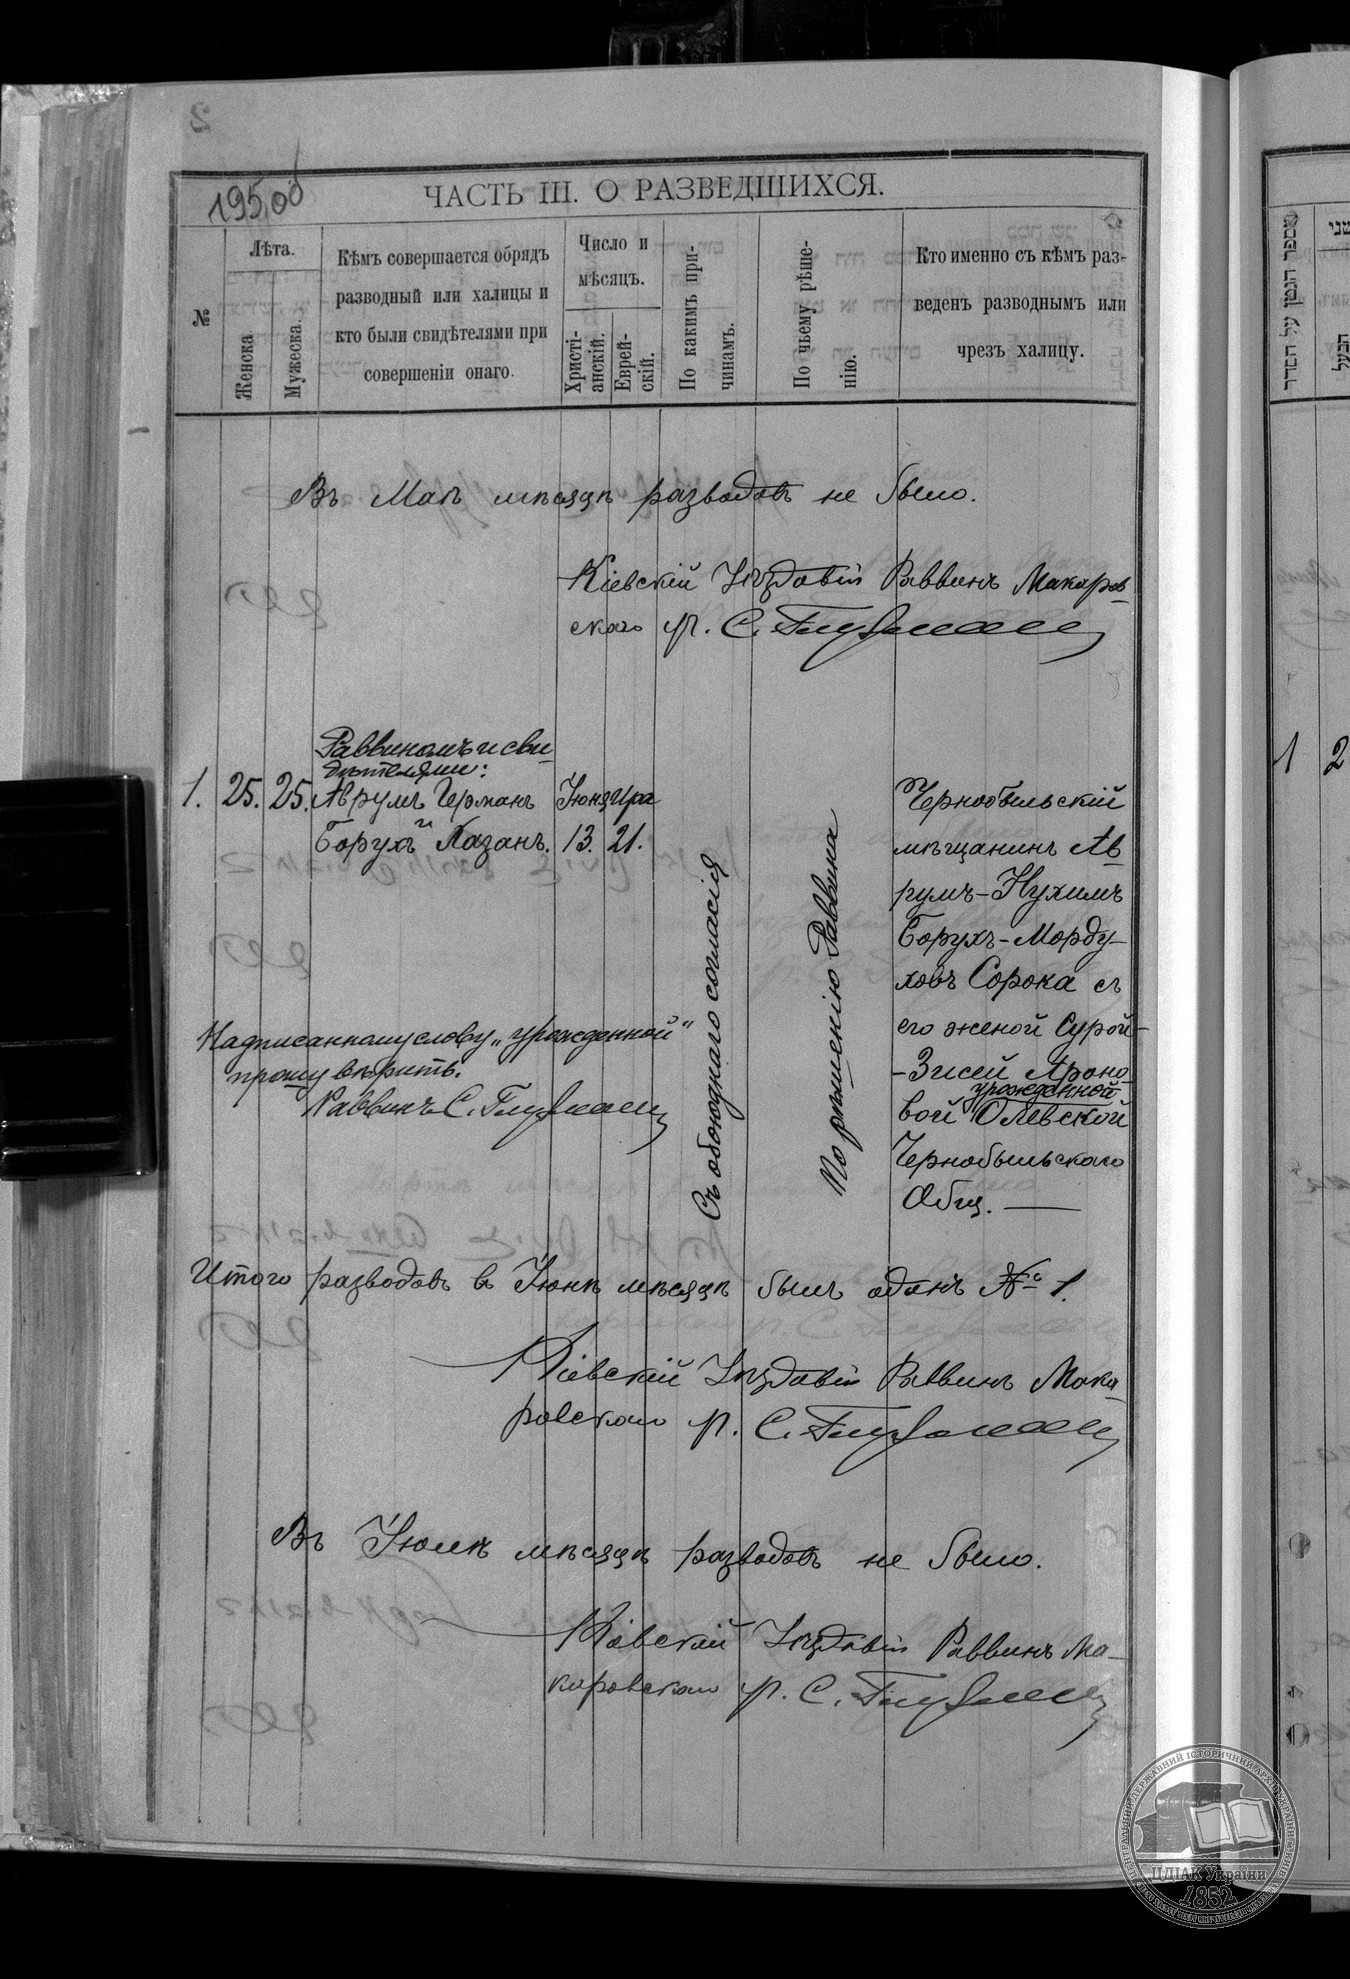 195об
ЧАСТЬ III. О РАЗВЕДШИХСЯ.
№
Лѣта.
Женска
Мужеска.
Кѣмъ совершается обрядъ
разводный или халицы и
кто были свидѣтелями при
совершеніи онаго.
Число и
мѣсяцъ.
Христі-
анскій.
Еврей-
скій.
По какимъ при-
чинамъ.
По чьему рѣше-
нію.
Кто именно съ кѣмъ раз-
веденъ разводнымъ или
чрезъ халицу.
Въ Маѣ мѣсяцѣ разводовъ не было.
Кіевскій Уѣздовый Раввинъ Макаров-
скаго р. С. Глузманъ
Раввиномъ и сви-
дѣтелями:
1. 25. 25. Аврумъ Германъ
и
Борухъ Казанъ.
Іюня
13.
Сира
21.
Съ обоюднаго согласія
По рѣшенію Раввина
Чернобыльскій
мѣщанинъ Ав-
румъ-Нухимъ
Борухъ-Морду-
ховъ Сорока съ
его женой Сурой-
-Зисей Ароно-
урожденной
вой Олевской
Чернобыльскаго
Общ.
Надписанному слову „урожденной"
прошу вѣрить.
Раввинъ С. Глузманъ
Итого разводовъ въ Іюнѣ мѣсяцѣ былъ одинъ № 1.
Кіевскій Уѣздовый Раввинъ Мака-
ровскаго р. С. Глузманъ
Въ Іюлѣ мѣсяцѣ разводовъ не было.
Кіевскій Уѣздовый Раввинъ Ма-
каровскаго р. С. Глузманъ
1 2
מספר הגטין על הסדר
שני
הבעל
ЦЕНТРАЛЬНИЙ ДЕРЖАВНИЙ ІСТОРИЧНИЙ АРХІВ УКРАЇНИ
ЦДІАК України
1852